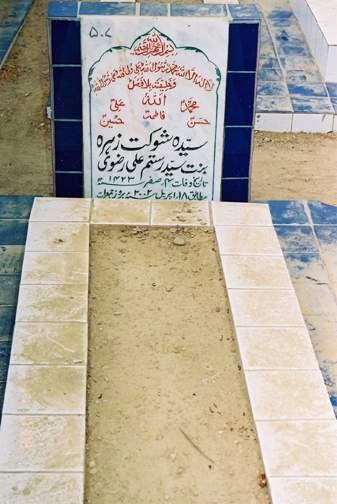 ۵۰۷
بسم اللہ الرحمن الرحیم
لا الہ الا اللہ محمد رسول اللہ علی ولی اللہ وصی رسول اللہ
وخلیفتہ بلا فصل
محمدؐ اللہ علیؑ
حسنؑ فاطمہؑ حسینؑ
سیدہ شوکت زہرہ
بنت سید رستم علی رضوی
تاریخ وفات ۴ صفر ۱۴۲۳ھ
مطابق ۱۸ اپریل ۲۰۰۲ء بروز جمعرات